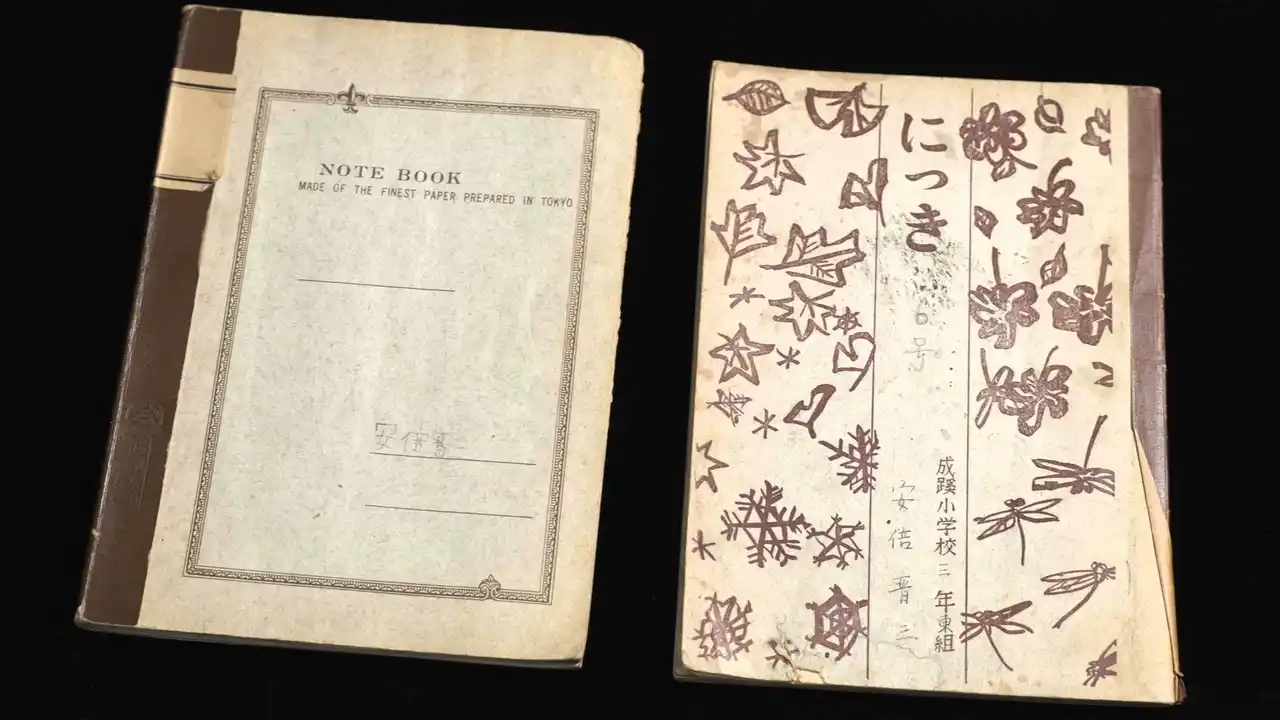 NOTE BOOK
MADE OF THE FINEST PAPER PREPARED IN TOKYO
安倍晋三
にっき
6号
成蹊小学校 三年東組
安倍晋三